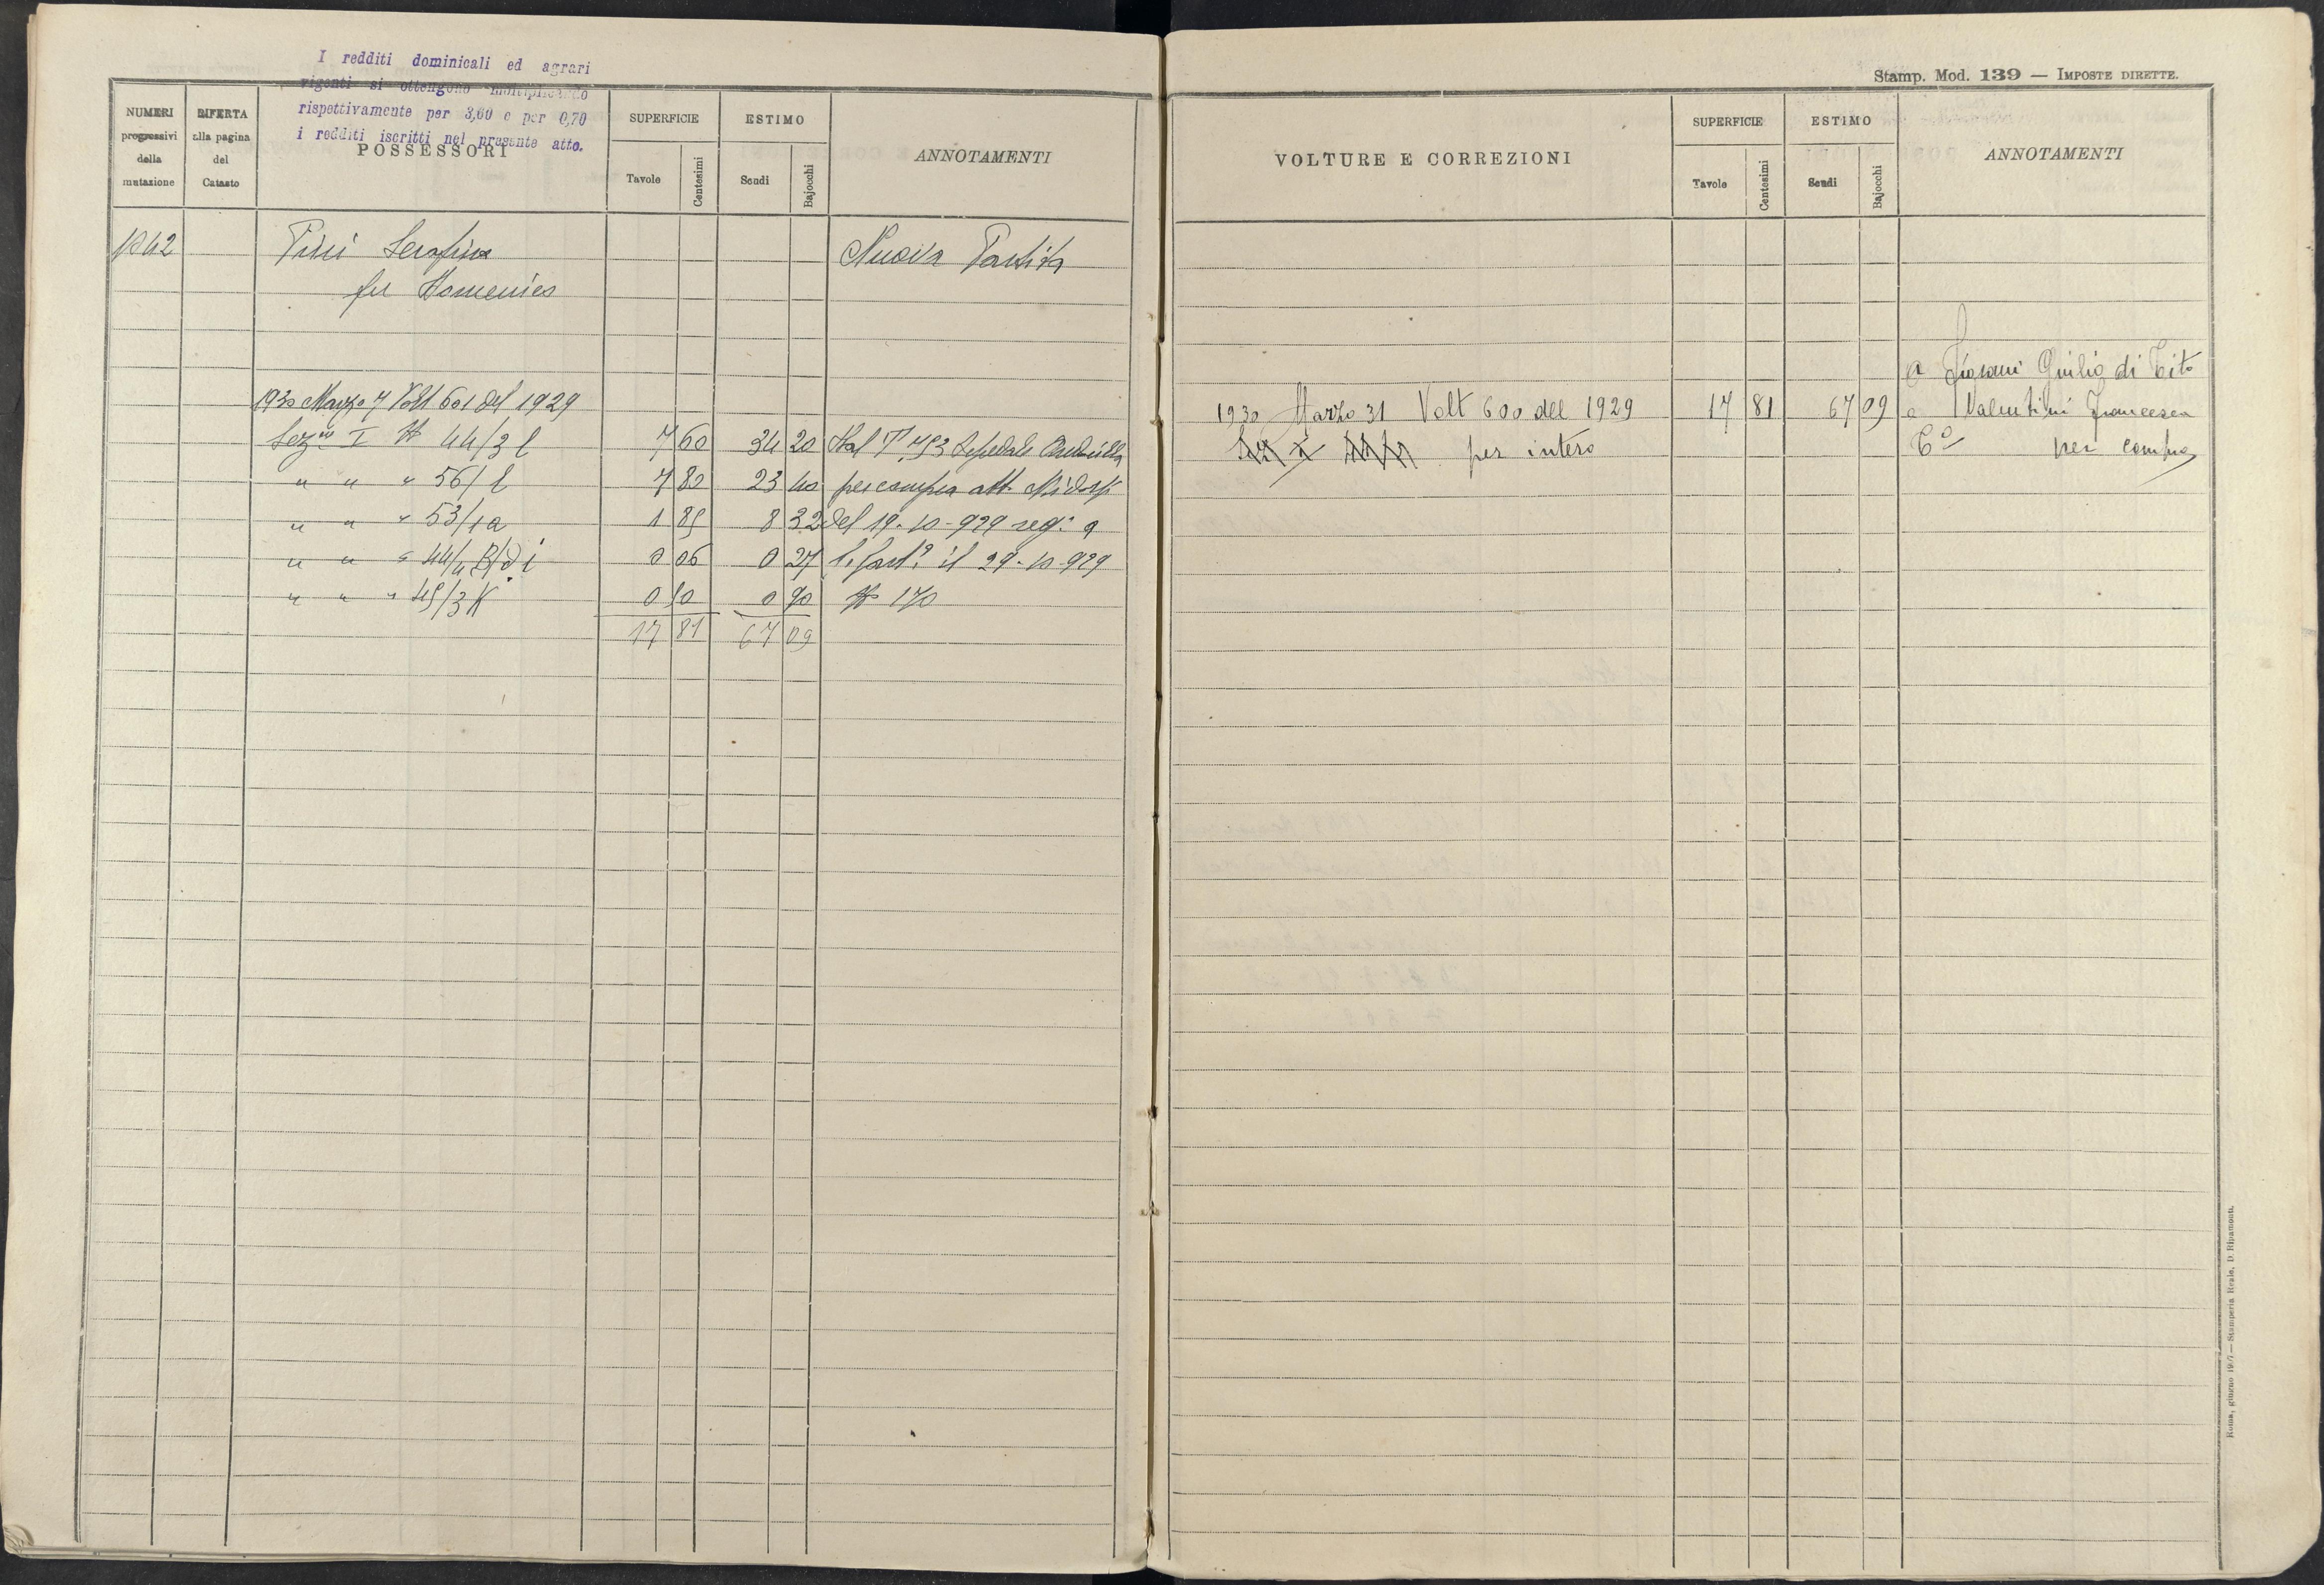 I redditi dominicali ed agrari
vigenti si ottengono moltiplicando
rispettivamente per 3,60 e per 0,70
i redditi iscritti nel presente atto.
Stamp. Mod. 139 — IMPOSTE DIRETTE.
NUMERI progressivi della mutazione
RIFERTA alla pagina del Catasto
POSSESSORI
SUPERFICIE
Tavole
Centesimi
ESTIMO
Scudi
Bajocchi
ANNOTAMENTI
VOLTURE E CORREZIONI
SUPERFICIE
Tavole
Centesimi
ESTIMO
Scudi
Bajocchi
ANNOTAMENTI
1042 Pirri Serafino Nuova Partita
fu Domenico
1930 Marzo 7 Volt 601 del 1929
Sez I N 44/3 l 7 60 34 20 Dal P 793
" " " 56/ l 7 80 23 40 per compra att.
" " " 53/1a 1 85 8 32 del 19-10-929 reg: a
" " " 44/4 0 06 0 27 il 29-10-929
" " " 45/3 K 0 50 0 90 N 170
17 81 67 09
a Giulio di Tito
1930 Marzo 31 Volt 600 del 1929 17 81 67 09 e Valentini Francesca
per intero per compra
Roma, giugno — Stamperia Reale, D. Ripamonti.